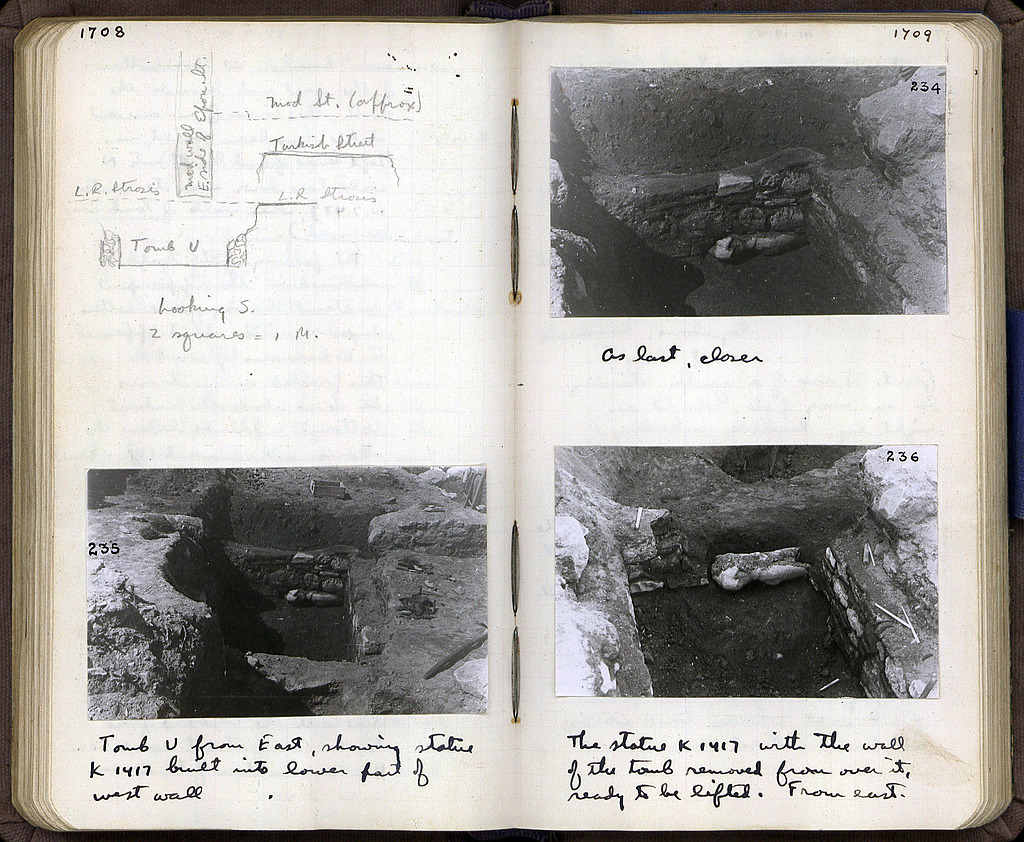 1708
mod St. (approx)
mod wall
E side of Eponslt.
Turkish Street
L.R. Strosis
L.R Strosis
Tomb U
Looking S.
2 squares = 1 M.
235
Tomb U from East, showing statue
K 1417 built into lower part of
west wall
1709
234
As last, closer
236
The statue K 1417 with the wall
of the tomb removed from over it,
ready to be lifted. From east.